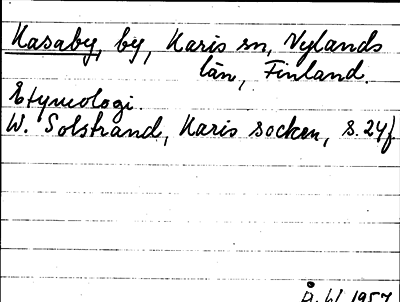 Kasaby, by, Karis sn, Nylands
län, Finland.
Etymologi.
W. Solstrand, Karis socken, s. 24f
Å. W. 1957